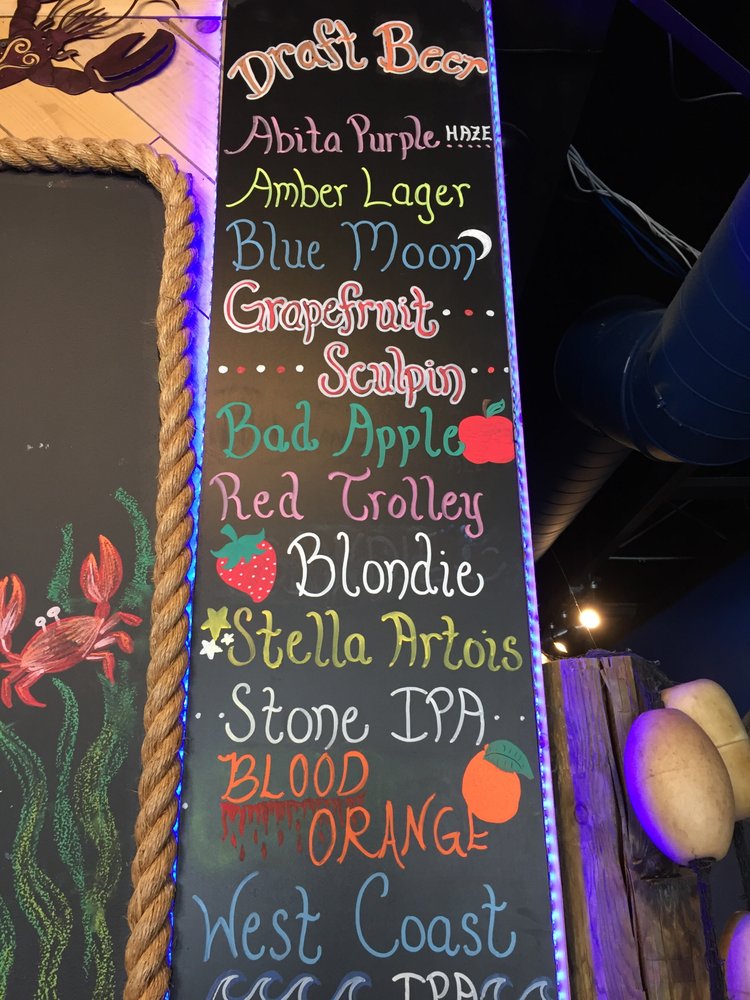 Draft Beer
Abita Purple HAZE
Amber Lager
Blue Moon
Grapefruit
Sculpin
Bad Apple
Red Trolley
Blondie
Stella Artois
Stone IPA
BLOOD
ORANGE
West Coast
IPA